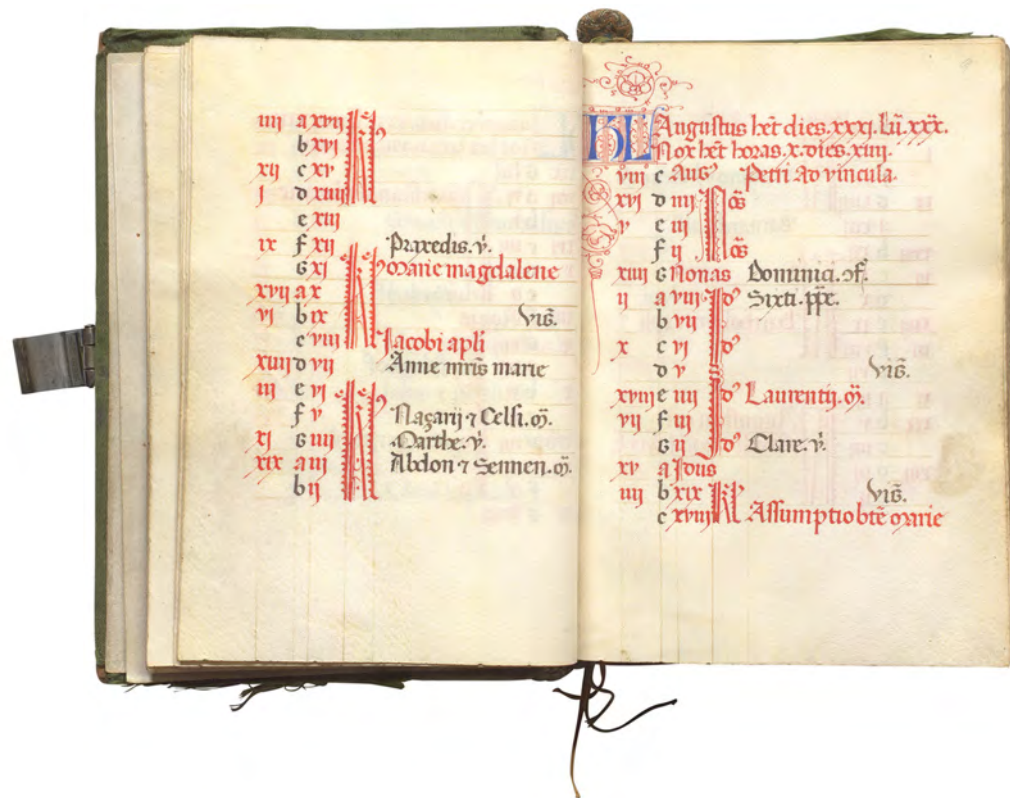 iiii a xvii kł
b xvi
xii c xv
j d xiiii
e xiii
ix f xii Praxedis. v̄.
G xi kł Marie magdalene
xvii a x
vi b ix Viḡ.
c viii Jacobi apli
xiiii d vii Anne mr̄is marie
iii e vi kł
f v Nazarij ⁊ Celsi. m̄.
xi G iiii Marthe. v̄.
xix a iii Abdon ⁊ Sennen. m̄.
b ii
KL Augustus hēt dies. xxxj. Lū. xxx.
Nox hēt horas. x. dies. xiiii.
viii c Augꝰ Petri Ad vincula.
xvj d iiij Nōs
v e iij
f ij Nōs
xiii G Nonas Dominici. ꝯf.
ii a viii Jdꝰ Sixti. pp̄e.
b vii
x c vj Jdꝰ
d v Viḡ.
xviii e iiii Jdꝰ Laurentij. m̄.
vii f iii
G ij Jdꝰ Clare. v̄.
xv a Jdus
iiii b xix kł Viḡ.
c xviii Assumptio btē marie